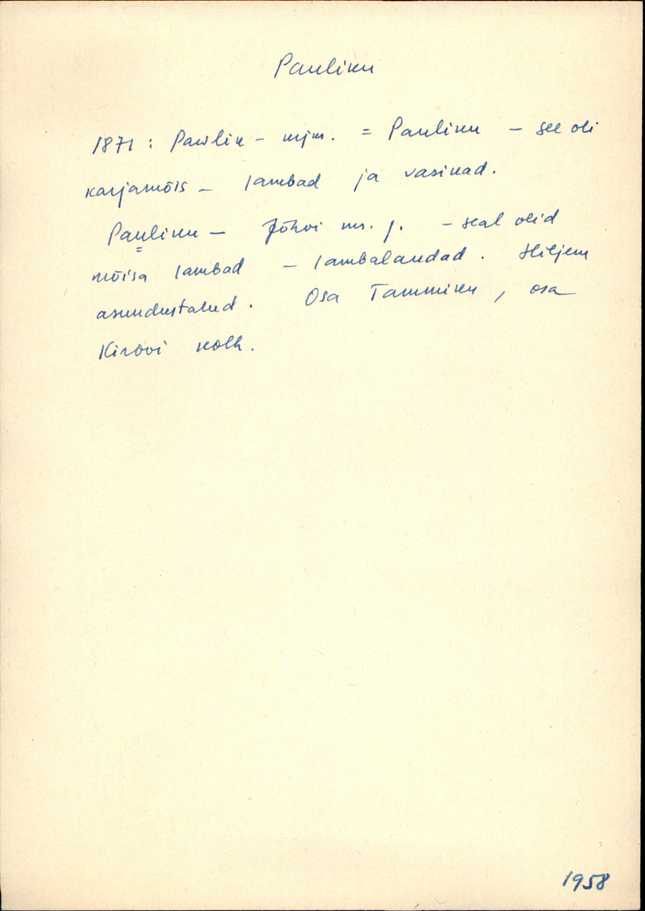 Pauliku
1871: Pawlik - mjm. = Pauliku - see oli
karjamõis - lambad ja vasikad.
Pauliku - Jõhvi ms. j. - seal olid
mõisa lambad - lambalaudad. Hiljem
asundustalud. Osa Tammiku, osa
Kirovi kolh.
1958